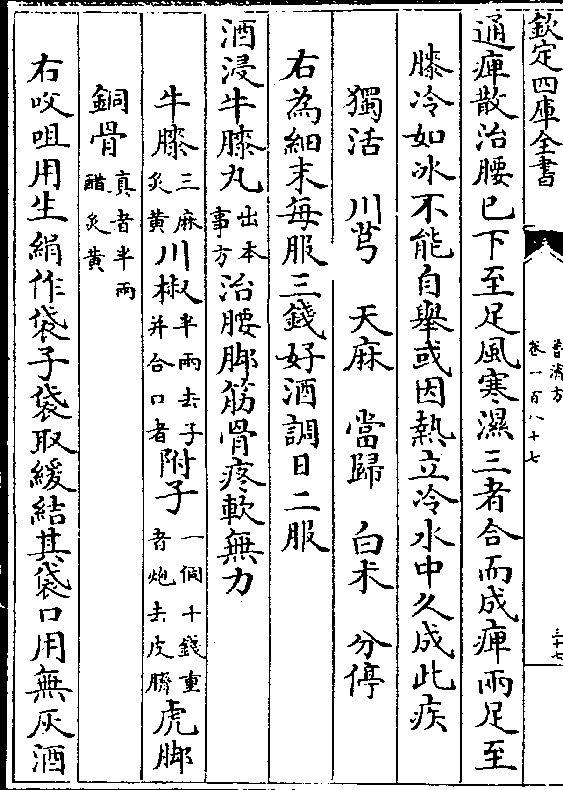 欽定四庫全書
普濟方
卷一百八十七
三十七
通痺散治腰已下至足風寒濕三者合而成痺兩足至
膝冷如冰不能自舉或因熱立冷水中久成此疾
獨活 川芎 天麻 當歸 白朮 分停
右為細末每服三錢好酒調日二服
酒浸牛膝丸出本事方治腰脚筋骨疼軟無力
牛膝三麻炙黄川椒半兩去子并合口者附子一個十錢重者炮去皮臍虎脚
銅骨真者半兩醋炙黄
右㕮咀用生絹作袋子袋取緩結其袋口用無灰酒